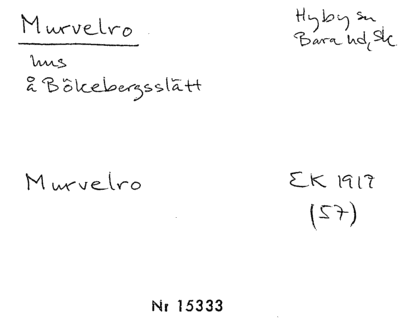 Murvelro
Hyby sn
Bara hd, Sk.
hus
å Bökebergsslätt
Murvelro
EK 1917
(57)
Nr 15333